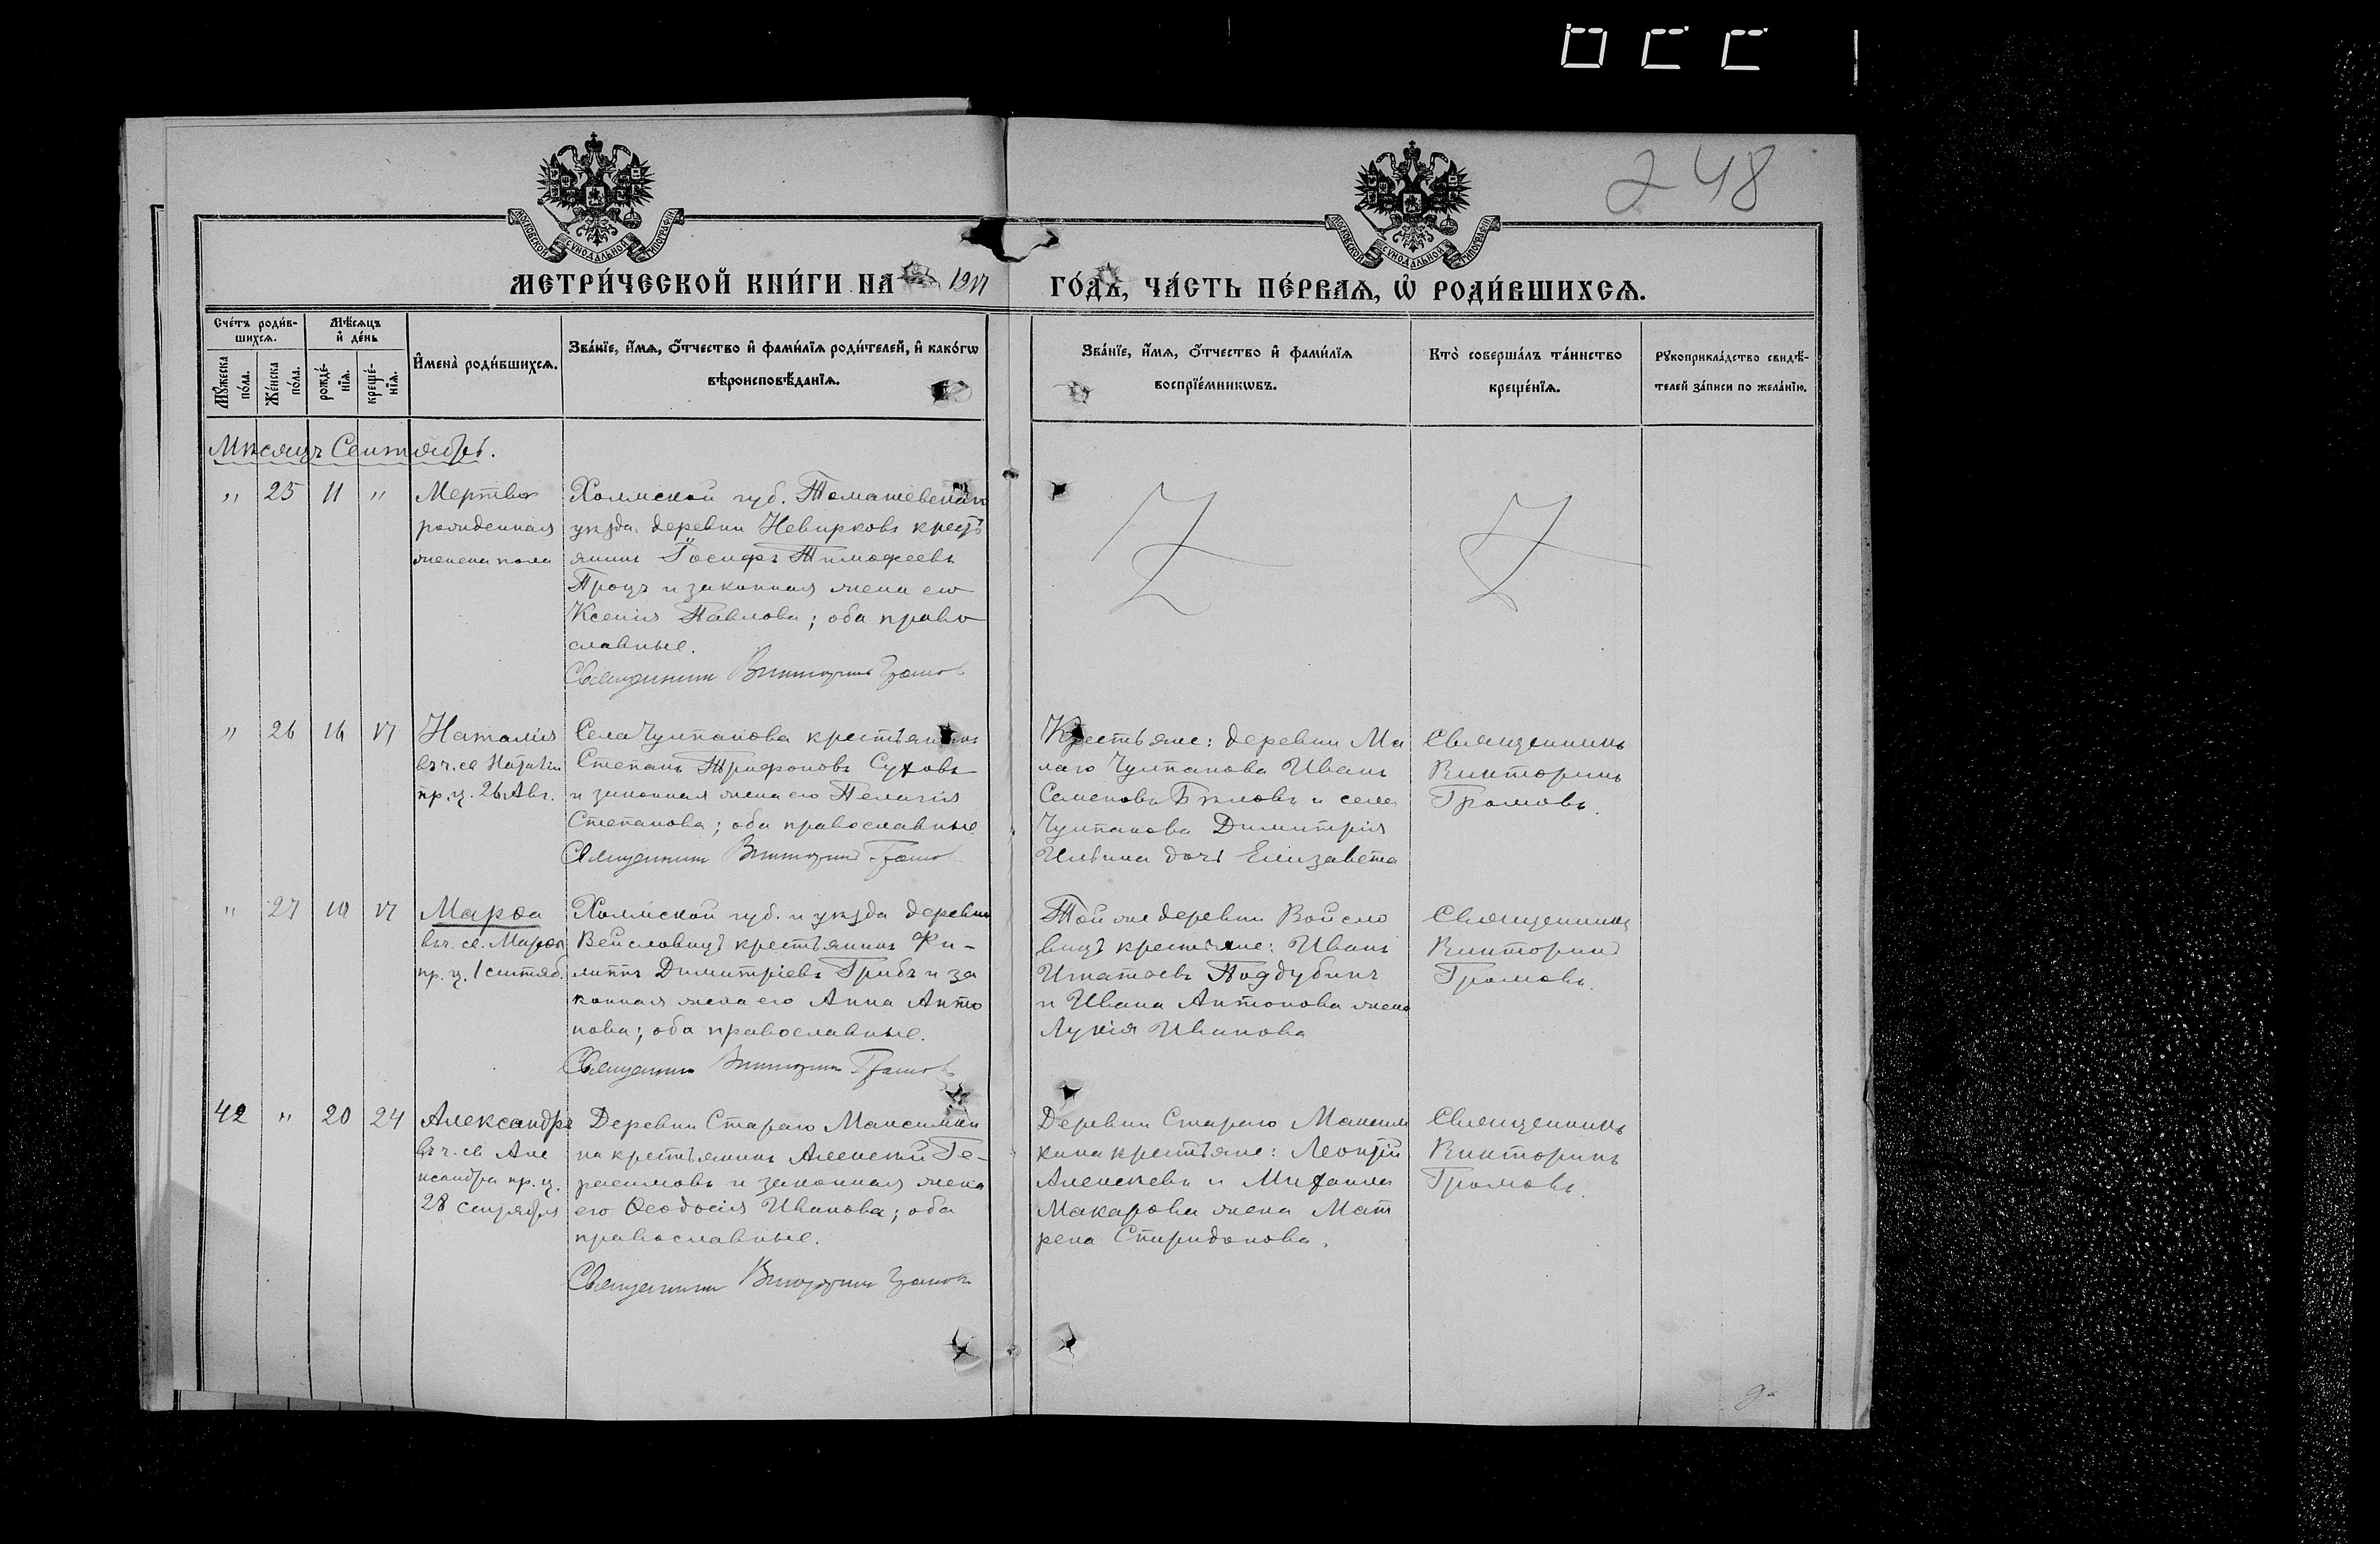 248
МОСКОВСКОЙ СУНОДАЛЬНОЙ ТИПОГРАФІИ
МОСКОВСКОЙ СУНОДАЛЬНОЙ ТИПОГРАФІИ
МЕТРИ́ЧЕСКОЙ КНИ́ГИ НА 1917 ГО́ДЪ, ЧА́СТЬ ПЕ́РВАѦ, Ѡ҆ РОДИ́ВШИХСѦ.
Сче́тъ роди́в-
шихсѧ.
Мꙋ́жеска по́ла.
Же́нска по́ла.
Мѣ́сѧцъ
и҆ де́нь
рожде́-нїѧ.
креще́-нїѧ.
И҆мена̀ роди́вшихсѧ.
Зва́нїе, и҆́мѧ, ѻ҆́тчество и҆ фами́лїѧ роди́телей, и҆ како́гѡ
вѣроисповѣ́данїѧ.
Зва́нїе, и҆́мѧ, ѻ҆́тчество и҆ фами́лїѧ
воспрїе́мникѡвъ.
Кто̀ соверша́лъ та́инство
креще́нїѧ.
Рꙋкоприкла́дство свидѣ́-
телей за́писи по жела́нїю.
Мѣсяцъ Сентябрь.
" 25 11 "
Мертво
рожденная
женска пола
Холмской губ. Томашевскаго
уѣзда деревни Невирковъ кресть
янинъ Іосифъ Тимофеевъ
Троцъ и законная жена его
Ксенія Павлова; оба право
славные.
Священникъ Викторинъ Громовъ
" 26 16 17
Наталія
въ ч. св Наталіи
пр. ц. 26 Авг.
Села Чулпанова крестьянинъ
Степанъ Трифоновъ Суховъ
и законная жена его Пелагія
Степанова; оба православные
Священникъ Викторинъ Громовъ
Крестьяне: деревни Ма
лаго Чулпанова Иванъ
Семеновъ Бѣловъ и села
Чулпанова Димитрія
Ильина дочь Елизавета
Священникъ
Викторинъ
Громовъ.
" 27 10 17
Марѳа
въ ч. св. Марѳы
пр. ц. 1 сентяб.
Холмской губ. и уѣзда деревни
Войсловицъ крестьянинъ Фи-
липпъ Димитріевъ Грибъ и за
конная жена его Анна Анто
нова; оба православные.
Священникъ Викторинъ Громовъ
Той же деревни Войсло
вицъ крестьяне: Иванъ
Игнатьевъ Поддубикъ
и Ивана Антонова жена
Лукія Иванова
Священникъ
Викторинъ
Громовъ.
42 " 20 24
Александръ
въ ч. св Але
ксандра пр. ц.
28 сентября
Деревни Стараго Максимки
на крестьянинъ Алексѣй Ге-
расимовъ и законная жена
его Ѳеодосія Иванова; оба
православные.
Священникъ Викторинъ Громовъ
Деревни Стараго Максим
кина крестьяне: Леонтій
Алексѣевъ и Михаила
Макарова жена Мат
рена Спиридонова.
Священникъ
Викторинъ
Громовъ.